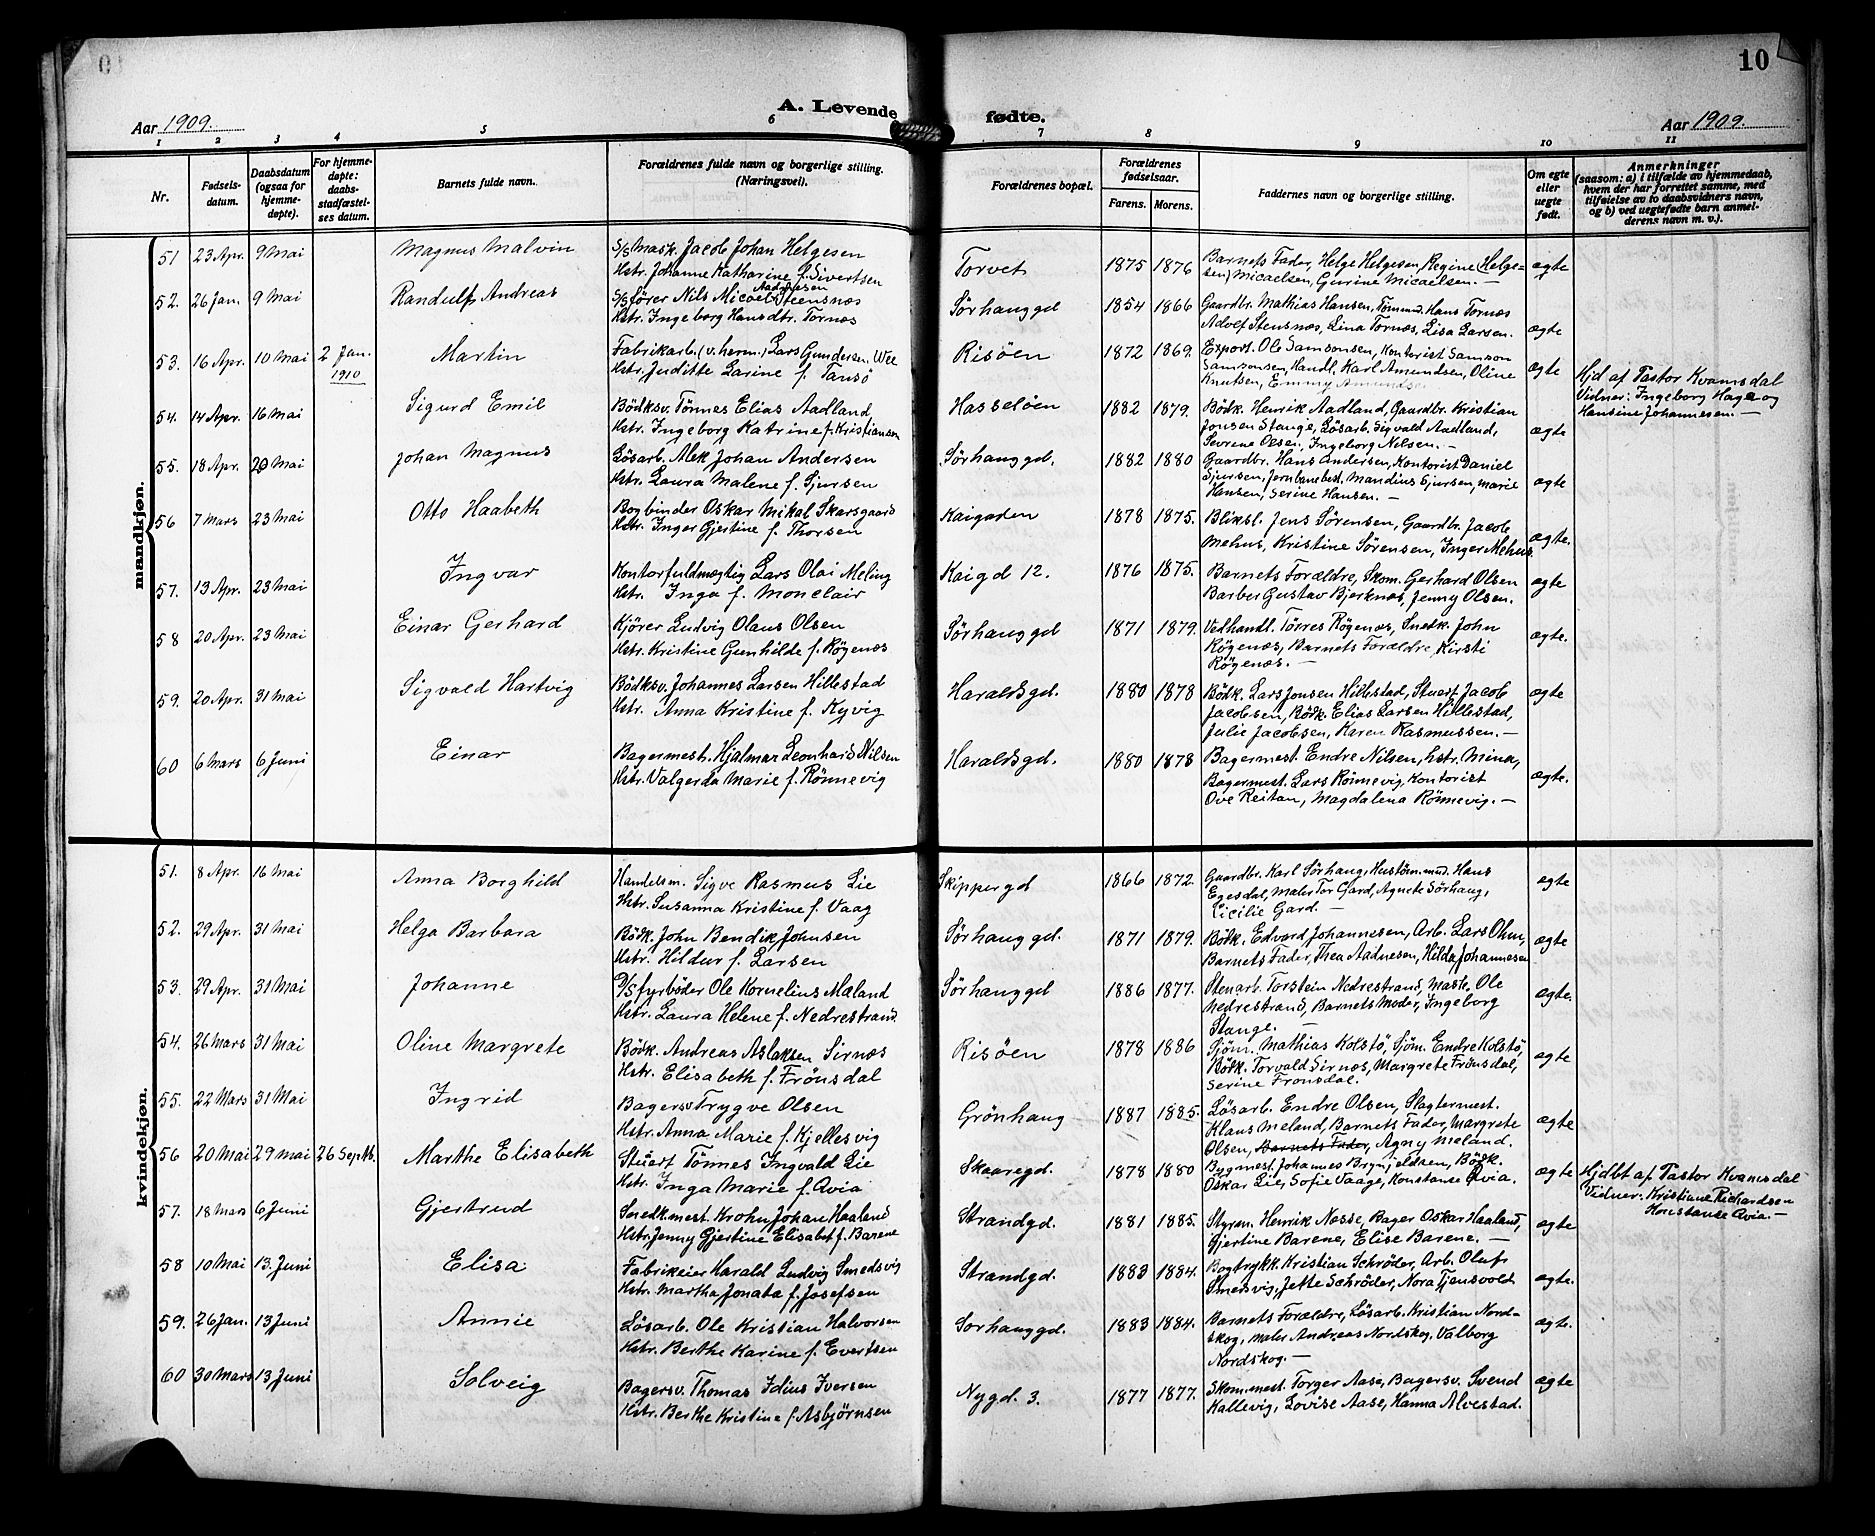 10
A. Levende fødte.
Aar 1909.
Aar 1909.
1 2 3 4 5 6 7 8 9 10 11
Nr.
Fødsels-
datum.
Daabsdatum
(ogsaa for
hjemme-
døpte).
For hjemme-
døpte:
daabs-
stadfæstel-
ses datum.
Barnets fulde navn.
Forældrenes fulde navn og borgerlige stilling.
(Næringsvei).
Forældrenes bopæl.
Forældrenes
fødselsaar.
Farens. Morens.
Faddernes navn og borgerlige stilling.
Om egte
eller
uegte
født.
Anmerkninger
(saasom: a) i tilfælde av hjemmedaab,
hvem der har forrettet samme, med
tilføielse av to daabsvidners navn,
og b) ved uegtefødte barn anmel-
derens navn m. v.).
mandkjøn.
51 23 Apr. 9 Mai Magnus Malvin S/S Mask. Jacob Johan Helgesen Torvet 1875 1876 Barnets Fader, Helge Helgesen, Regine (Helge- ægte
Hstr. Johanne Katharine f. Sivertsen sen) Micaelsen, Gurine Micaelsen. —
52. 26 Jan. 9 Mai Randulf Andreas S/S fører Nils Micael Steensnæs Sörhauggd 1854 1866 Gaardbr. Mathias Hansen, Tömmd. Hans Tornæs
Hstr. Ingeborg Hansdtr. Tornæs Adolf Stensnæs, Lina Tornæs, Lisa Larsen. ægte
53. 16 Apr. 10 Mai 2 Jan. 1910 Martin Fabrikarb. (v. herm.) Lars Gundersen Wee Risöen 1872 1869. Export. Ole Samsonsen, Kontorist Samson
Hstr. Juditte Larine f. Tansö Samsonsen, Handl. Karl Amundsen, Oline ægte Hjd af Pastor Kvamsdal
Knutsen, Emmy Amundsen Vidner: Ingeborg Hage og
Hansine Johannesen. —
54. 14 Apr. 16 Mai Sigurd Emil Bödksv. Tönnes Elias Aadland Hasselöen 1882 1879. Bödk. Henrik Aadland, Gaardbr. Kristian
Hstr. Ingeborg Katrine f. Kristiansen Jonsen Stange, Lösarb. Sigvald Aadland, ægte
Severine Olsen, Ingeborg Nilsen. —
55. 18 Apr. 20 Mai Johan Magnus Lösarb. Alek Johan Andersen Sörhauggd. 1882 1880 Gaardbr. Hans Andersen, Kontorist Daniel
Hstr. Laura Malene f. Sjursen Sjursen, Jernbanebest. Mandius Sjursen, Marie ægte
Hansen, Serine Hansen. —
56 7 Mars 23 Mai Otto Haabeth Bogbinder Oskar Mikal Skarsgaard Kaigaden 1878 1875. Bliksl. Jens Sörensen, Gaardbr. Jacob
Hstr. Inger Gjertine f. Thorsen Mehus, Kristine Sörensen, Inger Mehus ægte.
57. 13 Apr. 23 Mai Ingvar Kontorfuldmægtig Lars Olai Meling Kaigd 12. 1876 1875. Barnets Forældre, Skom. Gerhard Olsen ægte
Hstr. Inga f. Monclair Barber Gustav Bjerknæs, Jenny Olsen.
58 20 Apr. 23 Mai Einar Gerhard Kjörer Ludvig Olaus Olsen Sörhauggd 1871 1879. Vedhandl. Törres Rögenæs, Snedk. John ægte.
Hstr. Kristine Gunhilde f. Rögenæs Rögenæs, Barnets Forældre, Kirsti
Rögenæs. —
59. 20 Apr. 31 Mai Sigvald Hartvig Bödksv. Johannes Larsen Hillestad Haraldsgd. 1880 1878 Bödk. Lars Jonsen Hillestad, Stuert Jacob ægte
Hstr. Anna Kristine f. Kyvig Jacobsen, Bödk. Elias Larsen Hillestad,
Julie Jacobsen, Karen Rasmussen. —
60 6 Mars 6 Juni Einar Bagermest. Hjalmar Leonhard Nilsen Haraldsgd. 1880 1878 Bagermest. Endre Nilsen, hstr. Mina,
Hstr. Valgerda Marie f. Rönnevig Bagermest. Lars Rönnevig, Kontorist ægte.
Ove Reitan, Magdalena Rönnevig. —
kvindekjøn.
51. 8 Apr. 16 Mai Anna Borghild Handelsm. Sigve Rasmus Lie Skippergd 1866 1872. Gaardbr. Karl Sörhaug, Hustöm.md. Hans ægte
Hstr. Susanna Kristine f. Vaag Egesdal, Maler Tor Gard, Agnete Sörhaug,
Cicilie Gard. —
52. 29 Apr. 31 Mai Helga Barbara Bödk. John Bendik Johnsen Sörhauggd. 1871 1879. Bödk. Edvard Johannesen, Arb. Lars Olsen, ægte
Hstr. Hildur f. Larsen Barnets Fader, Thea Aadnesen, Hilda Johannesen
53. 29 Apr. 31 Mai Johanne D/S fyrböder Ole Kornelius Mæland Sörhauggd 1886 1877. Stenarb. Torstein Nedrestrand, Mask. Ole ægte.
Hstr. Laura Helene f. Nedrestrand. Nedrestrand, Barnets Moder, Ingeborg
Stange. —
54. 26 Mars 31 Mai Oline Margrete Bödk. Andreas Aslaksen Sirnæs Risöen 1878 1886 Sjöm. Mathias Kolstö, Sjöm. Endre Kolstö, ægte
Hstr. Elisabeth f. Frönsdal Bödk. Torvald Sirnæs, Margrete Frönsdal,
Serine Fronsdal.
55. 22 Mars 31 Mai Ingrid Bagersv Trygve Olsen Grönhaug 1887 1885. Lösarb. Endre Olsen, Slagtermest. ægte
Hstr. Anna Marie f. Kjellesvig Klaus Meland, Barnets Fader, Margrete
Olsen, Barnets Fader, Agny Meland.
56 20 Mai 29 Mai 26 Septb. Marthe Elisabeth Stuert Tönnes Ingvald Lie Skaaregd. 1878 1880 Bygmest. Johannes Brynjeldsen, Bödk. ægte Hjdbt af Pastor Kvamsdal
Hstr. Inga Marie f. Qvia Oskar Lie, Sofie Vaage, Konstanse Qvia. Vidner: Kristiane Richardsen
Konstanse Qvia. —
57. 18 Mars 6 Juni Gjertrud Snedk.mest. Krohn Johan Haaland Strandgd. 1881 1885. Styrm. Henrik Næsse, Bager Oskar Haaland, ægte
Hstr. Jenny Gjertine Elisabet f. Barene Gjertine Barene, Elise Barene. —
58 10 Mai 13. Juni Elisa Fabrikeier Harald Ludvig Smedsvig Strandgd. 1883 1884. Bogtrykk. Kristian Schröder, Arb. Oluf
Hstr. Martha Jonata f. Josefsen Smedsvig, Jette Schröder, Nora Tjensvold ægte.
59. 26 Jan. 13 Juni Annie Lösarb. Ole Kristian Halvorsen Sorhauggd. 1883 1884. Barnets Forældre, Lösarb. Kristian Nord- ægte.
Hstr. Berthe Karine f. Evertsen skog, Maler Andreas Nordskog, Valborg
Nordskog. —
60 30 Mars 13 Juni Solveig Bagersv. Thomas Idius Iversen Nygd. 3. 1877 1877. Skom.mest. Torger Aase, Bagersv. Svend ægte
Hstr. Berthe Kristine f. Asbjörnsen Kallevig, Lovise Aase, Hanna Alvestad.